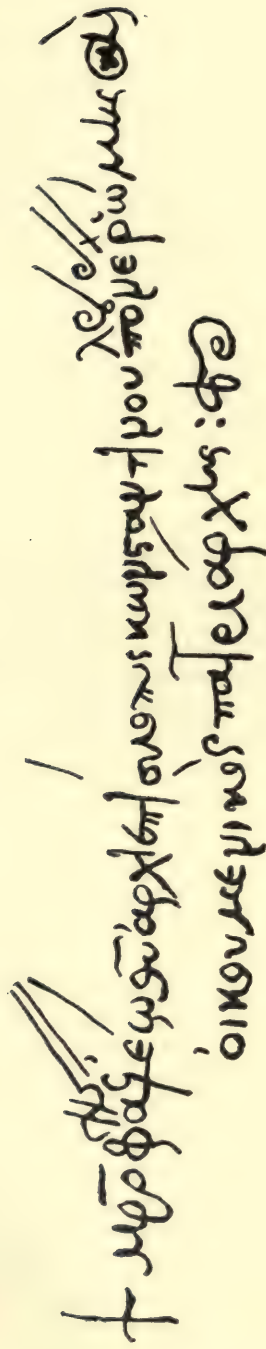 + Μητροφάνης ἐλέω θῦ ἀρχιεπίσκοπος κωνσταντινουπόλεως νέας ῥώμης καὶ
οἰκουμενικὸς πατριάρχης :